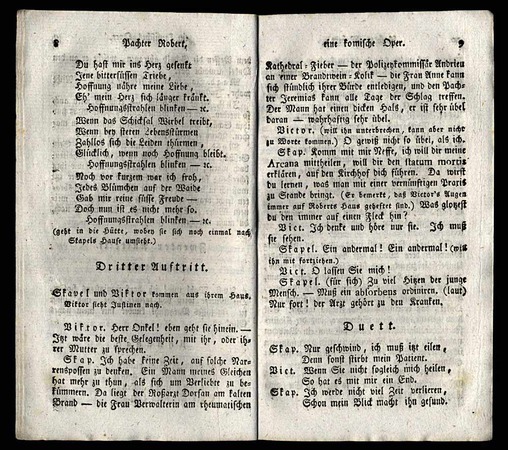 8 Pachter Robert,
Du hast mir ins Herz gesenkt
Jene bittersüssen Triebe,
Hoffnung nähre meine Liebe,
Eh' mein Herz sich länger kränkt.
Hoffnungsstrahlen blinken — ꝛc.
Wenn das Schicksal Wirbel treibt,
Wenn bey steren Lebensstürmen
Zahllos sich die Leiden thürmen,
Glücklich, wenn noch Hoffnung bleibt.
Hoffnungsstrahlen blinken — ꝛc.
Noch vor kurzem war ich froh,
Jedes Blümchen auf der Waide
Gab mir reine süsse Freude —
Doch nun ist es nicht mehr so.
Hoffnungsstrahlen blinken — ꝛc.
(geht in die Hütte, wobey sie sich noch einmal nach
Skapels Hause umsieht.)
Dritter Auftritt.
Skapel und Viktor kommen aus ihrem Haus,
Viktor sieht Justinen nach.
Viktor. Herr Onkel! eben geht sie hinein. —
Itzt wäre die beste Gelegenheit, mit ihr, oder ih-
rer Mutter zu sprechen.
Skap. Ich habe keine Zeit, auf solche Nar-
renspossen zu denken. Ein Mann meines Gleichen
hat mehr zu thun, als sich um Verliebte zu be-
kümmern. Da liegt der Roßarzt Dorsan am kalten
Brand — die Frau Verwalterin am rheumatischen
eine komische Oper. 9
Kathedral-Fieber — der Polizeykommissär Andrien
an einer Brandewein-Kolik — die Frau Anne kann
sich stündlich ihrer Bürde entledigen, und den Pach-
ter Jeremias kann alle Tage der Schlag treffen.
Der Mann hat einen dicken Hals, er ist sehr übel
daran — wahrhaftig sehr übel.
Victor. (will ihn unterbrechen, kann aber nicht
zu Worte kommen.) O gewiß nicht so übel, als ich.
Skap. Komm mit mir Neff, ich will dir meine
Arcana mittheilen, will dir den statum mortis
erklären, auf den Kirchhof dich führen. Da wirst
du lernen, was man mit einer vernünftigen Praxis
zu Stande bringt. (Er bemerkt, daß Victor's Augen
immer auf Roberts Haus geheftet sind.) Was glotzest
du den immer auf einen Fleck hin?
Vict. Ich denke und höre nur sie. Ich muß
sie sehen.
Skapel. Ein andermal! Ein andermal! (will
ihn mit fortziehen.)
Vict. O lassen Sie mich!
Skapel. (für sich) Zu viel Hitzen der junge
Mensch. — Muß ein absorbens ordiniren. (laut)
Nur fort! der Arzt gehört zu den Kranken.
Duett.
Skap. Nur geschwind, ich muß itzt eilen,
Denn sonst stirbt mein Patient.
Vict. Wenn Sie nicht sogleich mich heilen,
So hat es mit mir ein End.
Skap. Ich werde nicht viel Zeit verlieren,
Schon mein Blick macht ihn gesund.